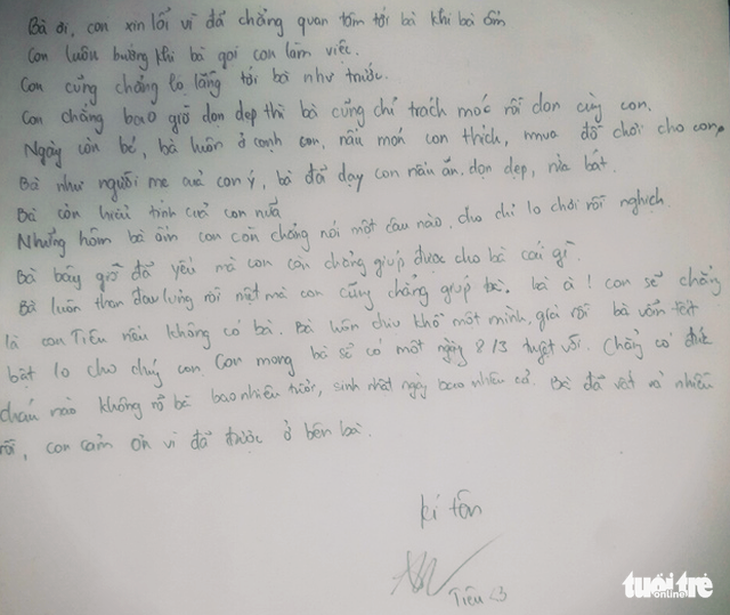 Bà ơi, con xin lổi vì đã chẳng quan tâm tới bà khi bà ốm
Con luôn bướng khi bà gọi con làm việc.
Con cũng chẳng lo lắng tới bà như trước.
Con chẳng bao giờ dọn dẹp thì bà cũng chỉ trách móc rồi dọn cùng con.
Ngày còn bé, bà luôn ở cạnh con, nấu món con thích, mua đồ chơi cho con.
Bà như người mẹ của con ý, bà đã dạy con nấu ăn. dọn dẹp, rửa bát.
Bà còn hiểu tính của con nữa
Những hôm bà ốm con còn chẳng nói một câu nào, cho chỉ lo chơi rồi nghịch
Bà bây giờ đã yếu mà con còn chẳng giúp được cho bà cái gì
Bà luôn than đau lưng rồi mệt mà con cũng chẳng giúp bà. bà à! con sẽ chẳng
là con Tiên nếu không có bà. Bà luôn chịu khổ một mình, già rồi bà vẫn tất
bật lo cho chúng con. Con mong bà sẽ có một ngày 8/3 tuyệt vời. Chẳng có đứa
cháu nào không rõ bà bao nhiêu tuổi, sinh nhật ngày bao nhiêu cả. Bà đã vất vả nhiều
rồi, con cảm ơn vì đã được ở bên bà.
kí tên
Tiên <3
tuổi trẻ
online